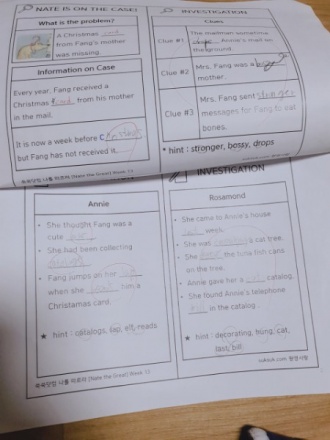 NATE IS ON THE CASE!
What is the problem?
A Christmas card
from Fang's mother
was missing.
Information on Case
Every year, Fang received a
Christmas from his mother
in the mail.
It is now a week before
but Fang has not received it.
INVESTIGATION
Clues
Clue #1
The mailman sometime
drops Annie's mail on
the ground.
Clue #2
Mrs. Fang was a
mother.
Clue #3
Mrs. Fang sent stronger
messages for Fang to eat
bones.
* hint : stronger, bossy, drops
Annie
• She thought Fang was a
cute
• She had been collecting
• Fang jumps on her
when she him a
Christamas card.
★ hint : catalogs, lap, elf, reads
INVESTIGATION
Rosamond
• She came to Annie's house
week.
• She was a cat tree.
• She the tuna fish cans
on the tree.
• Annie gave her a catalog.
• She found Annie's telephone
in the catalog
★ hint : decorating, hung, cat,
last, bill